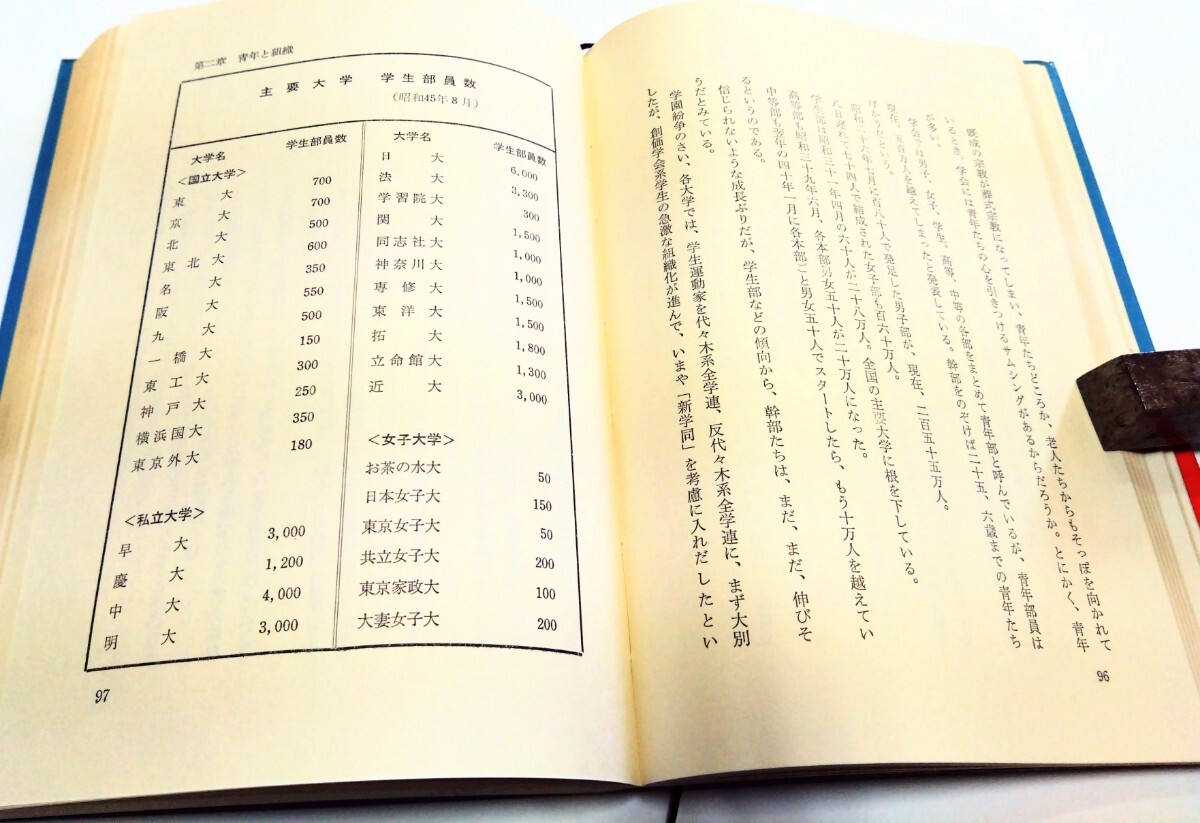 既成の宗教が葬式宗教になってしまい、青年たちどころか、老人たちからもそっぽを向かれて
いるとき、学会には青年たちの心を引きつけるサムシングがあるからだろうか。とにかく、青年
が多い。
学会では男子、女子、学生、高等、中等の各部をまとめて青年部と呼んでいるが、青年部員は
現在、五百万人を越えてしまったと発表している。幹部をのぞけば二十五、六歳までの青年たち
ばかりだという。
昭和二十六年七月に百八十人で発足した男子部が、現在、二百五十五万人。
八日遅れて七十四人で結成された女子部も百六十万人。
学生部は昭和三十一年四月の六十人が二十八万人。全国の主要大学に根を下している。
高等部も昭和三十九年六月、各本部男女五十人が二十万人になった。
中等部も翌年の四十年一月に各本部ごと男女五十人でスタートしたら、もう十万人を越えてい
るというのである。
信じられないような成長ぶりだが、学生部などの傾向から、幹部たちは、まだ、まだ、伸びそ
うだとみている。
学園紛争のさい、各大学では、学生運動家を代々木系全学連、反代々木系全学連に、まず大別
したが、創価学会系学生の急激な組織化が進んで、いまや「新学同」を考慮に入れだしたとい
96
第二章 青年と組織
主要大学 学生部員数
(昭和45年8月)
大学名 学生部員数
<国立大学>
東大 700
京大 700
北大 500
東北大 600
名大 350
阪大 550
九大 500
一橋大 150
東工大 300
神戸大 250
横浜国大 350
東京外大 180
<私立大学>
早大 3,000
慶大 1,200
中大 4,000
明大 3,000
大学名 学生部員数
日大 6,000
法大 3,300
学習院大 300
関大 1,500
同志社大 1,000
神奈川大 1,000
専修大 1,500
東洋大 1,500
拓大 1,800
立命館大 1,300
近大 3,000
<女子大学>
お茶の水大 50
日本女子大 150
東京女子大 50
共立女子大 200
東京家政大 100
大妻女子大 200
97